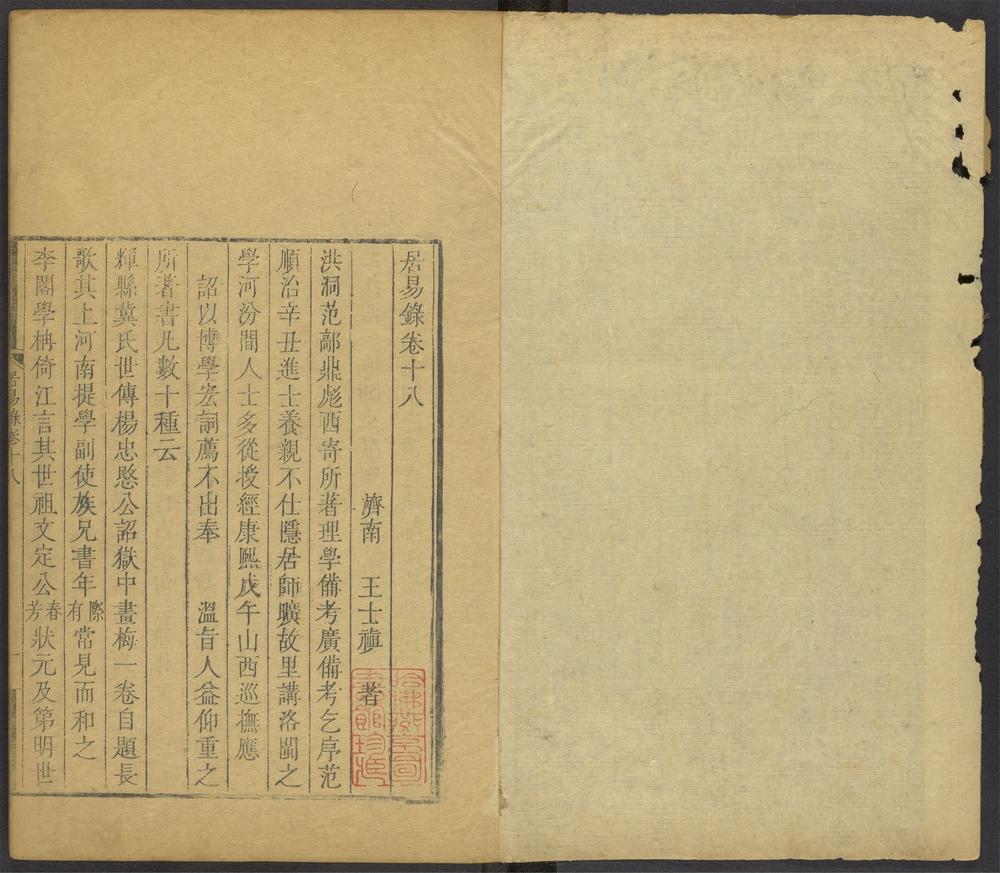 居易錄卷十八
濟南 王士禛 著
洪洞范鄗鼎彪西寄所著理學備考廣備考乞序范
順治辛丑進士養親不仕隱居師曠故里講洛閩之
學河汾間人士多從授經康熙戊午山西巡撫應
詔以博學宏詞薦不出奉 溫旨人益仰重之
所著書凡數十種云
輝縣冀氏世傳楊忠愍公詔獄中畫梅一卷自題長
歌其上河南提學副使族兄書年際有常見而和之
李閣學柟倚江言其世祖文定公春芳狀元及第明世
居易錄卷十八
一
哈佛燕京圖書館珍藏